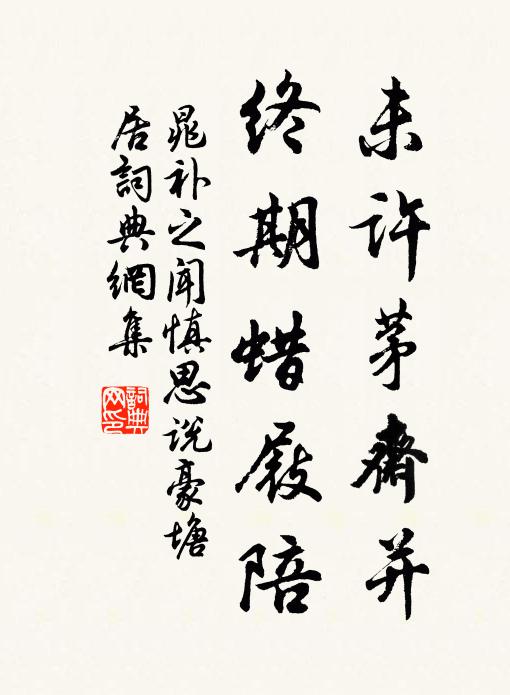 未許茅齊并
終期蜡屐陪
晁补之聞慎思说豪塘
居詞典網集
詞典网印